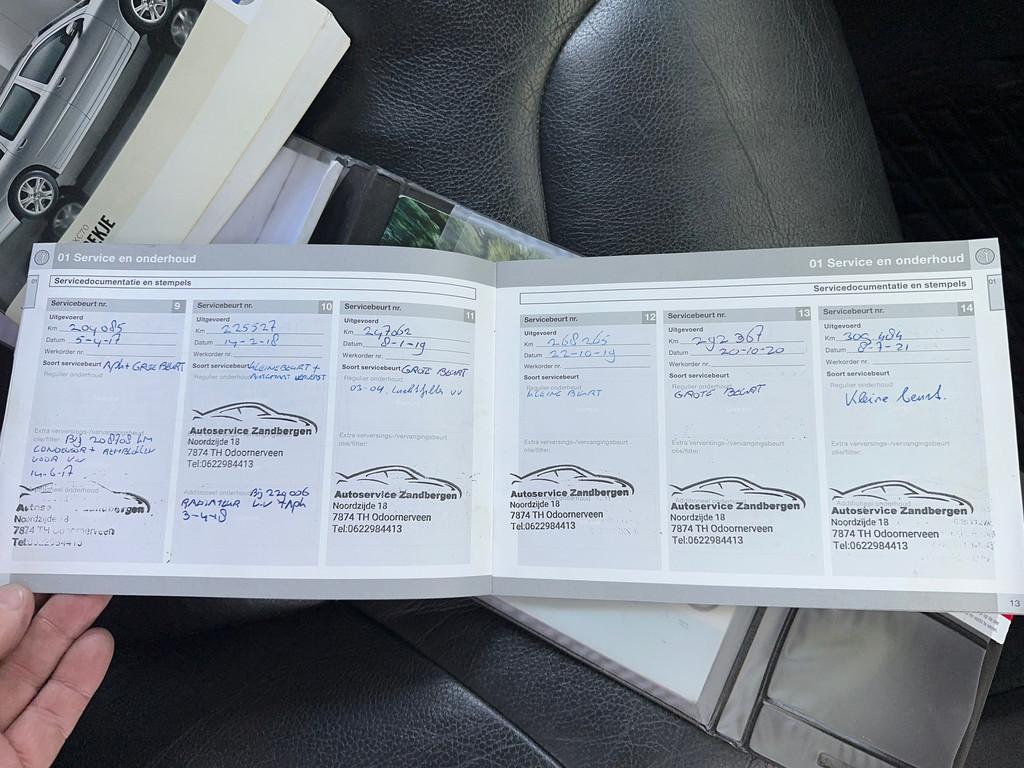 XC70
01 Service en onderhoud
Servicedocumentatie en stempels
01
Servicebeurt nr. 9
Uitgevoerd
Km 204085
Datum 5-4-17
Werkorder nr.
Soort servicebeurt APK+ GROTE BEURT
Regulier onderhoud
Extra verversings-/vervangingsbeurt
olie/filter: Bij 208708 KM
CONDENSOR + REMBLOKKEN
VOOR VV
14-6-17
Noordzijde 18
7874 TH Odoornerveen
Servicebeurt nr. 10
Uitgevoerd
Km 225527
Datum 14-2-18
Werkorder nr.
Soort servicebeurt KLEINE BEURT +
Regulier onderhoud
Autoservice Zandbergen
Noordzijde 18
7874 TH Odoornerveen
Tel:0622984413
Additioneel onderhoud Bij 229006
RADIATEUR VV +APK
3-4-18
Servicebeurt nr. 11
Uitgevoerd
Km 247062
Datum 8-1-19
Werkorder nr.
Soort servicebeurt GROTE BEURT
Regulier onderhoud
03-04. Luchtfilter VV
Autoservice Zandbergen
Noordzijde 18
7874 TH Odoornerveen
Tel:0622984413
01 Service en onderhoud
Servicedocumentatie en stempels
01
Servicebeurt nr. 12
Uitgevoerd
Km 268265
Datum 22-10-19
Werkorder nr.
Soort servicebeurt
Regulier onderhoud
KLEINE BEURT
Extra verversings-/vervangingsbeurt
olie/filter:
Autoservice Zandbergen
Noordzijde 18
7874 TH Odoornerveen
Tel:0622984413
Servicebeurt nr. 13
Uitgevoerd
Km 292367
Datum 20-10-20
Werkorder nr.
Soort servicebeurt
Regulier onderhoud
GROTE BEURT
Extra verversings-/vervangingsbeurt
olie/filter:
Autoservice Zandbergen
Noordzijde 18
7874 TH Odoornerveen
Tel:0622984413
Servicebeurt nr. 14
Uitgevoerd
Km 305484
Datum 8-7-21
Werkorder nr.
Soort servicebeurt
Regulier onderhoud
Kleine beurt.
Extra verversings-/vervangingsbeurt
olie/filter:
Additioneel onderhoud
Autoservice Zandbergen
Noordzijde 18
7874 TH Odoornerveen
Tel:0622984413
13